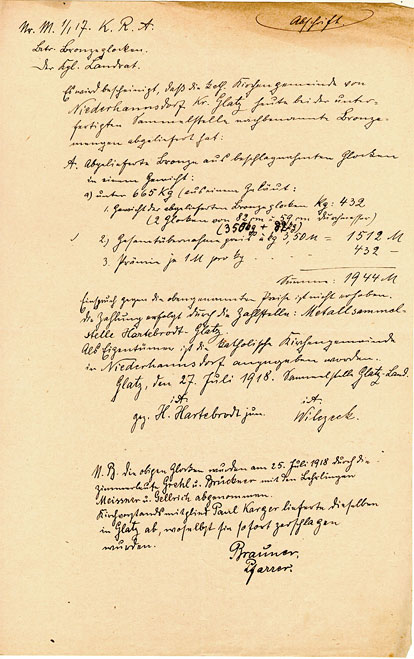 Abschrift
Nr. M. 1/1 17. K. R. A.
Betr. Bronzeglocken.
Der Kgl. Landrat.
Es wird bescheinigt, daß die kath. Kirchengemeinde von
Niederhannsdorf Kr. Glatz heute bei der unter-
fertigten Sammelstelle nachbenannte Bronze-
mengen abgeliefert hat:
A. Abgelieferte Bronze aus beschlagnahmten Glocken
in einem Gewicht:
a) unter 665 Kg (aus einem Geläut:
1. Gewicht der abgelieferten Bronzeglocken Kg: 432
(2 Glocken von 82 cm u 59 cm Durchmesser)
(350 kg + 82 kg)
2) Gesamtübernahmepreis à kg 3,50 M = 1512 M
3. Prämie je 1 M pro kg 432 -
Summe: 1944 M
Einspruch gegen die obengenannten Preise ist nicht erhoben.
Die Zahlung erfolgt durch die Zahlstelle: Metallsammel-
stelle Hartebrodt-Glatz.
Als Eigentümer ist die katholische Kirchengemeinde
in Niederhannsdorf angegeben worden.
Glatz, den 27. Juli 1918. Sammelstelle Glatz-Land.
i.A. i.A.
gez. H. Hartebrodt jun. Wilczek.
N. B. die obigen Glocken wurden am 25. Juli 1918 durch die
Zimmerleute Grehl u. Brückner mit den Lehrlingen
Meissner u. Gellrich abgenommen.
Kirchvorstandsmitglied Paul Karger lieferte dieselben
in Glatz ab, woselbst sie sofort zerschlagen
wurden.
Brauner,
Pfarrer.